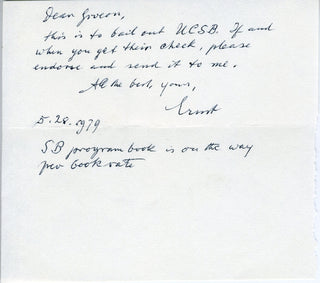 Dear Gordon,
this is to bail out UCSB. If and
when you get their check, please
endorse and send it to me.
All the best, yours,
Ernst
5.28.1979
SB program book is on the way
per book rate